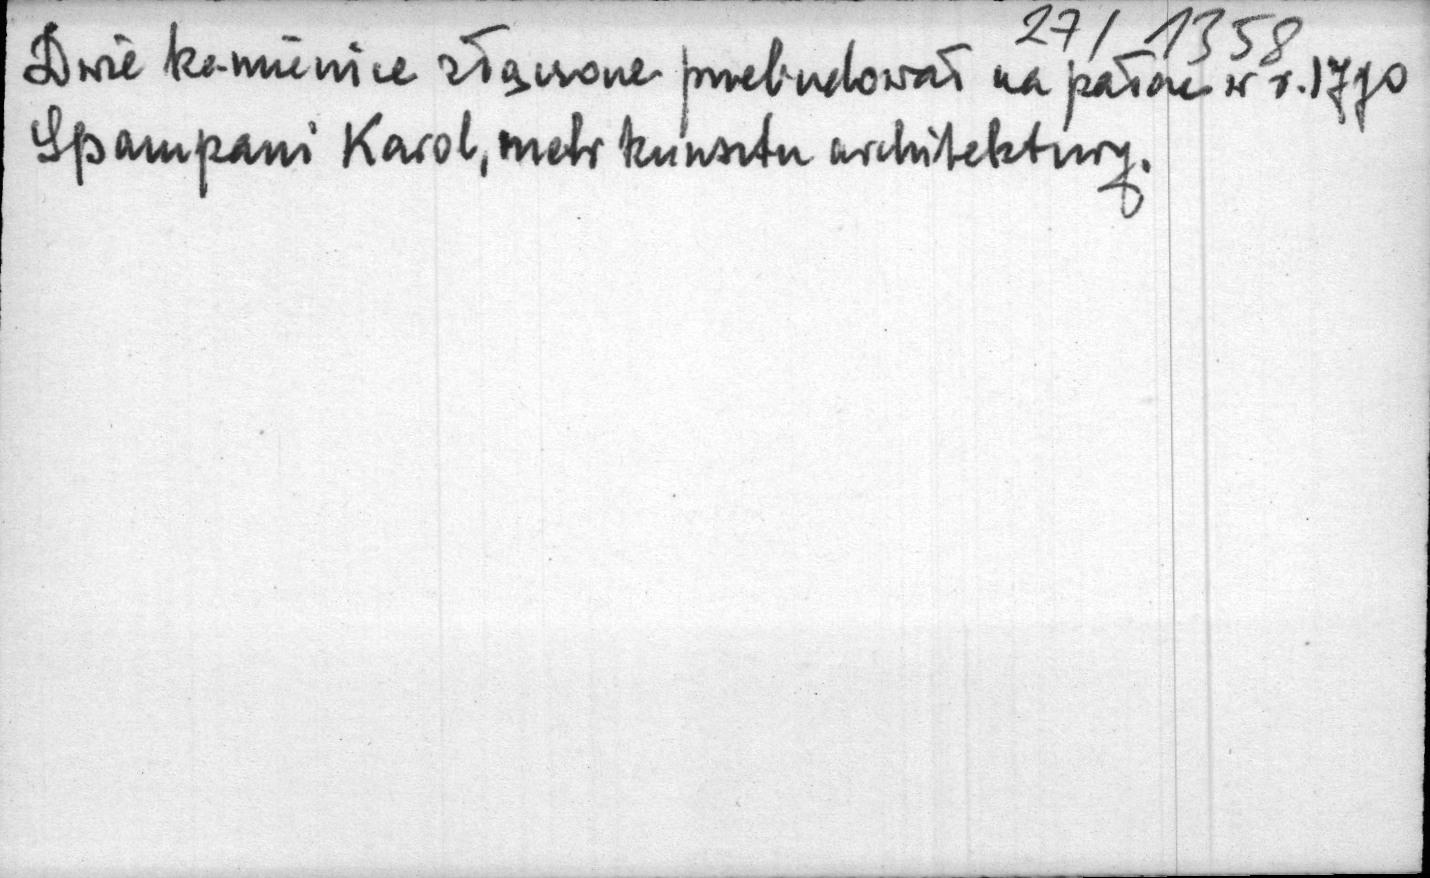 27/1358
Dwie kamienice złączone przebudował na pałac w r. 1770
Spampani Karol, metr kunsztu architektury.